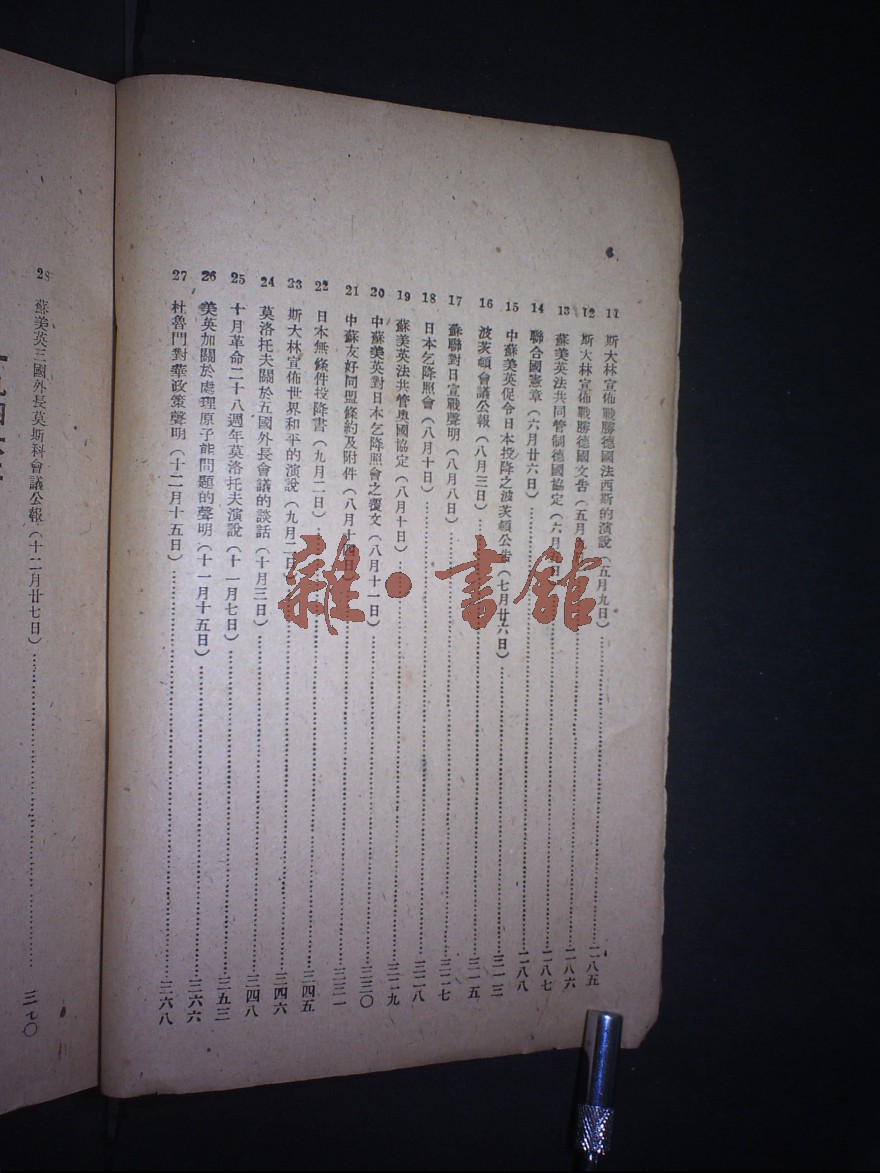 6
11 斯大林宣佈戰勝德國法西斯的演說(五月九日)……二八五
12 斯大林宣佈戰勝德國文告(五月九日)……二八六
13 蘇美英法共同管制德國協定(六月五日)……二八七
14 聯合國憲章(六月廿六日)……二八八
15 中蘇美英促令日本投降之波茨頓公告(七月廿六日)……三一三
16 波茨頓會議公報(八月三日)……三一五
17 蘇聯對日宣戰聲明(八月八日)……三二七
18 日本乞降照會(八月十日)……三二八
19 蘇美英法共管奧國協定(八月十日)……三二九
20 中蘇美英對日本乞降照會之覆文(八月十一日)……三三〇
21 中蘇友好同盟條約及附件(八月十四日)……三三一
22 日本無條件投降書(九月二日)……三四五
23 斯大林宣佈世界和平的演說(九月二日)……三四六
24 莫洛托夫關於五國外長會議的談話(十月三日)……三四八
25 十月革命二十八週年莫洛托夫演說(十一月七日)……三五三
26 美英加關於處理原子能問題的聲明(十一月十五日)……三六六
27 杜魯門對華政策聲明(十二月十五日)……三六八
28 蘇美英三國外長莫斯科會議公報(十二月廿七日)……三七〇
雜·書館